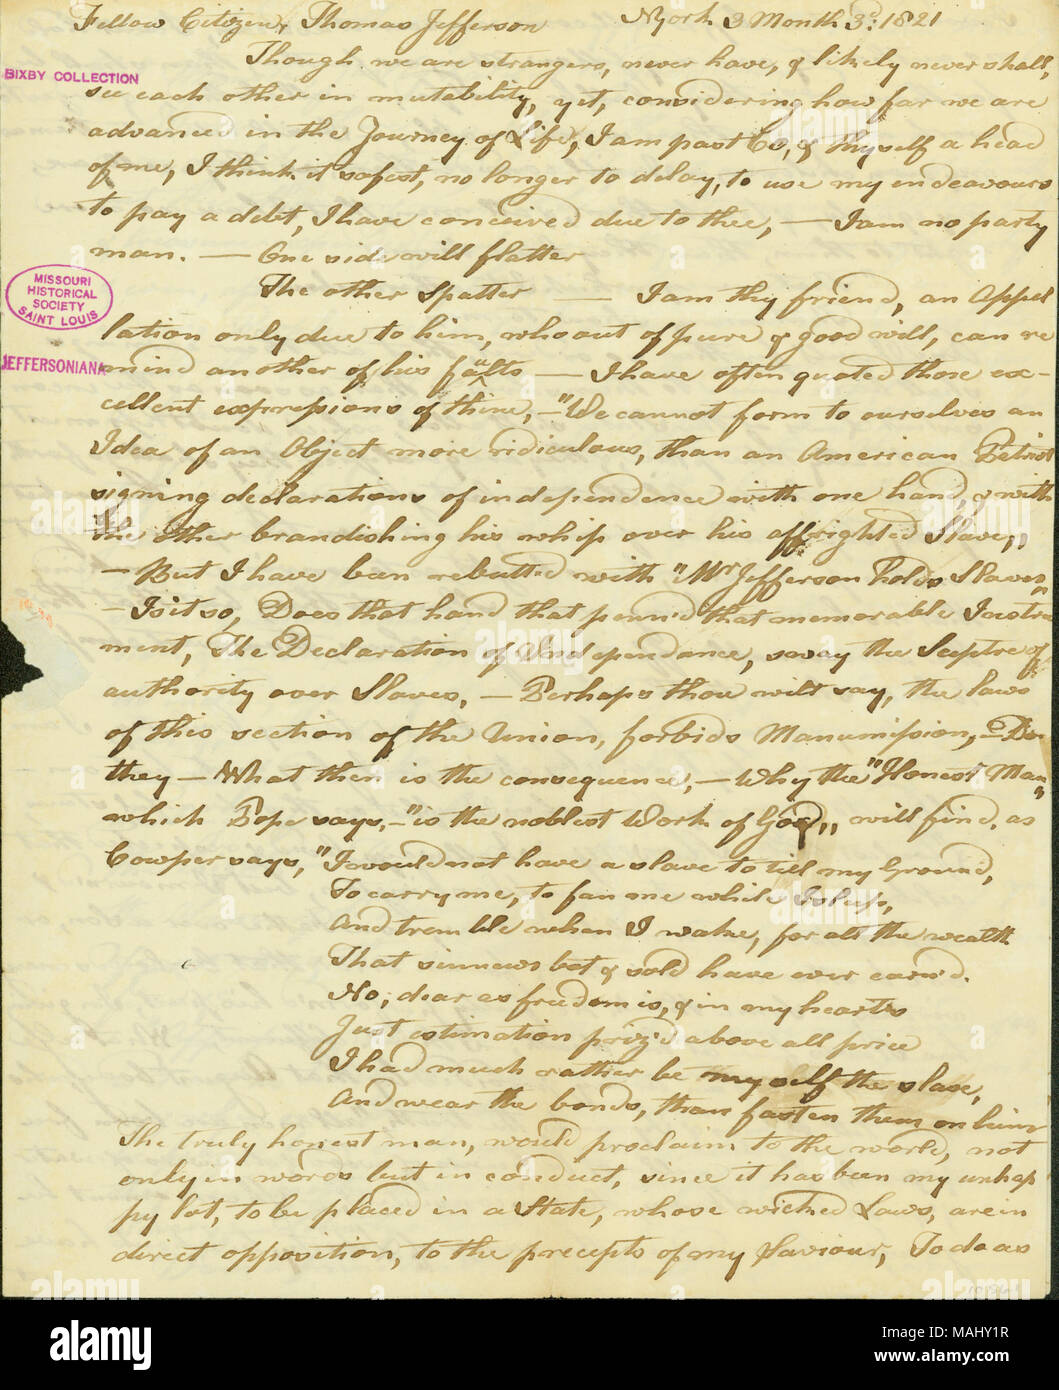 Fellow Citizen, Thomas Jefferson NYork 3 Month 3d. 1821
Though we are strangers, never have, & likely never shall,
BIXBY COLLECTION
see each other in mutability, yet, considering how far we are
advanced in the Journey of Life, I am past 60, & thyself a head
of me, I think it safest, no longer to delay, to use my endeavours
to pay a debt, I have conceived due to thee, — I am no party
man. — One side will flatter
MISSOURI
HISTORICAL
SOCIETY
SAINT LOUIS
The other Spatter — I am thy friend, an Appel
lation only due to him, who out of pure & good will, can re
JEFFERSONIANA
mind another of his faults — I have often quoted those ex-
cellent expressions of thine, — "We cannot form to ourselves an
Idea of an Object more ridiculous, than an American Patriot
signing declarations of independence with one hand, & with
the other brandishing his whip over his affrighted Slave,"
— But I have been rebutted with "Mr Jefferson holds Slaves"
— Is it so, Does that hand that penn'd that memorable Instru
ment, The Declaration of Independence, sway the Sceptre of
authority over Slaves, — Perhaps thou wilt say, the laws
of this section of the Union, forbids Manumission, — Do
they — What then is the consequence, — Why the "Honest Man"
which Pope says, — "is the noblest Work of God," will find, as
Cowper says, "I would not have a slave to till my Ground,
To carry me, to fan me while I sleep,
And tremble when I wake, for all the wealth
That sinnews bot & sold have ever earn'd.
No; dear as freedom is, & in my heart's
Just estimation priz'd above all price
I had much rather be my self the slave,
And wear the bonds, than fasten them on him
The truly honest man, would proclaim to the world, not
only in words but in conduct, since it has been my unhap
py lot, to be placed in a State, whose wicked Laws, are in
direct opposition, to the precepts of my Saviour, To do as
alamy
Image ID: MAHY1R
www.alamy.com